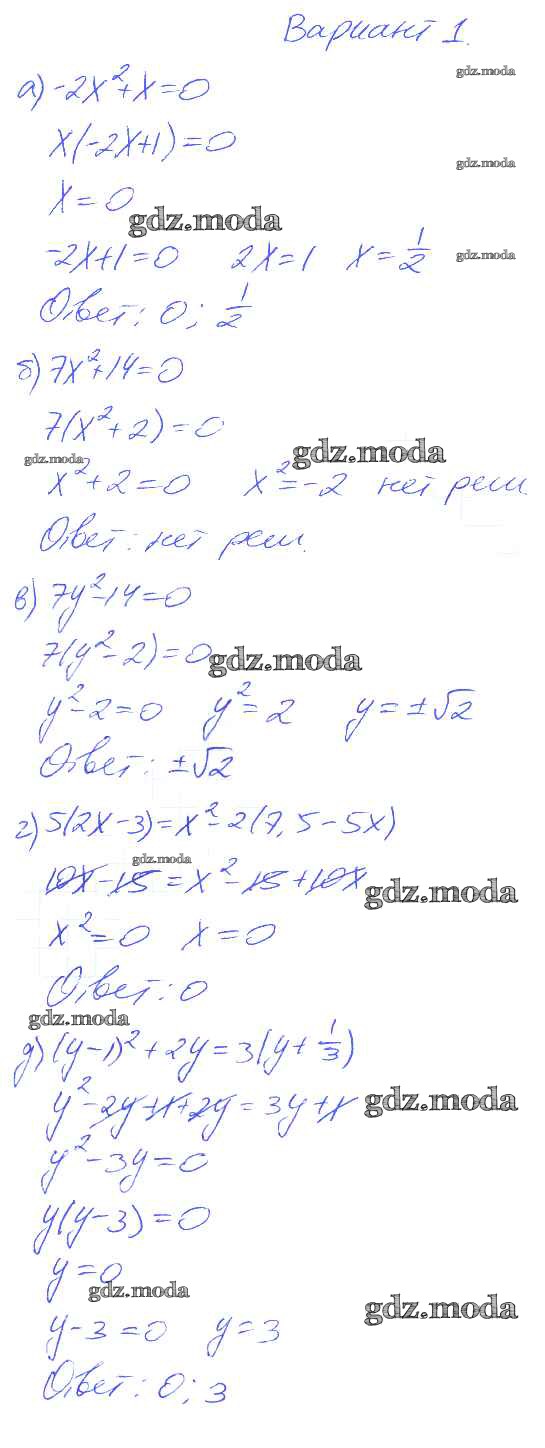 Вариант 1.
gdz.moda
а) -2x²+x=0
x(-2x+1)=0
gdz.moda
x=0
gdz.moda
-2x+1=0 2x=1 x=1/2
gdz.moda
Ответ: 0; 1/2
б) 7x²+14=0
7(x²+2)=0
gdz.moda
gdz.moda
x²+2=0 x²=-2 нет реш.
Ответ: нет реш.
в) 7y²-14=0
7(y²-2)=0
gdz.moda
y²-2=0 y²=2 y=±√2
Ответ: ±√2
г) 5(2x-3)=x²-2(7,5-5x)
gdz.moda
10x-15=x²-15+10x
gdz.moda
x²=0 x=0
Ответ: 0
gdz.moda
д) (y-1)²+2y=3(y+1/3)
y²-2y+1+2y=3y+1
gdz.moda
y²-3y=0
y(y-3)=0
y=0
gdz.moda
gdz.moda
y-3=0 y=3
Ответ: 0; 3